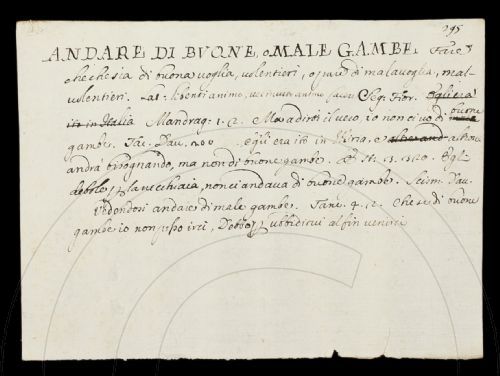 295
ANDARE DI BVONE, o MALE GAMBE. Fare
che che sia di buona voglia, volentieri, o pur di malavoglia, mal-
volentieri. Lat. libenti animo, animo facere Seg. Fior. Egli era
ito in Italia Mandrag. 1. 2. Ma a dirti il vero, io non ci vo di buone
gambe. Tac. Dav. egli era ito in Siria, e altrove
andrà bisognando, ma non di buone gambe. E St. 3. 320. Egl.
debole, p. la vecchiaia, non ci andava di buone gambe. Scism. Dav.
Vedendosi andare di male gambe. Tanc. 4. 2. Che se di buone
gambe io non potrò irci, Debbo p. ubbidirvi al fin venirci